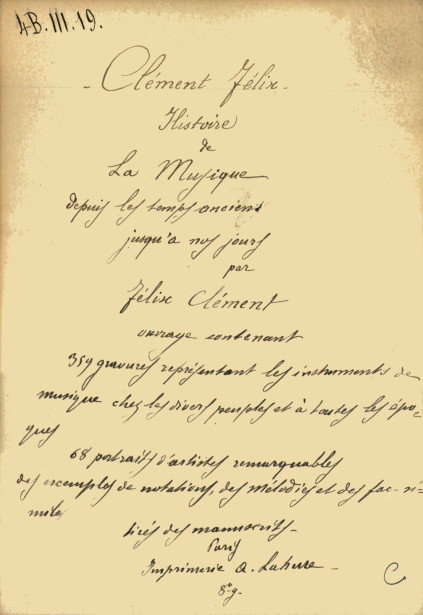 4B.III.19.
- Clément Félix -
Histoire
de
La Musique
depuis les temps anciens
jusqu'a nos jours
par
Félix Clément
ouvrage contenant
359 gravures représentant les instruments de
musique chez les divers peuples et à toutes les épo-
ques
68 portraits d'artistes remarquables
des exemples de notations, des mélodies et des fac-si-
mile
tirés des manuscrits -
Paris
Imprimerie A. Lahure -
8º g.
C